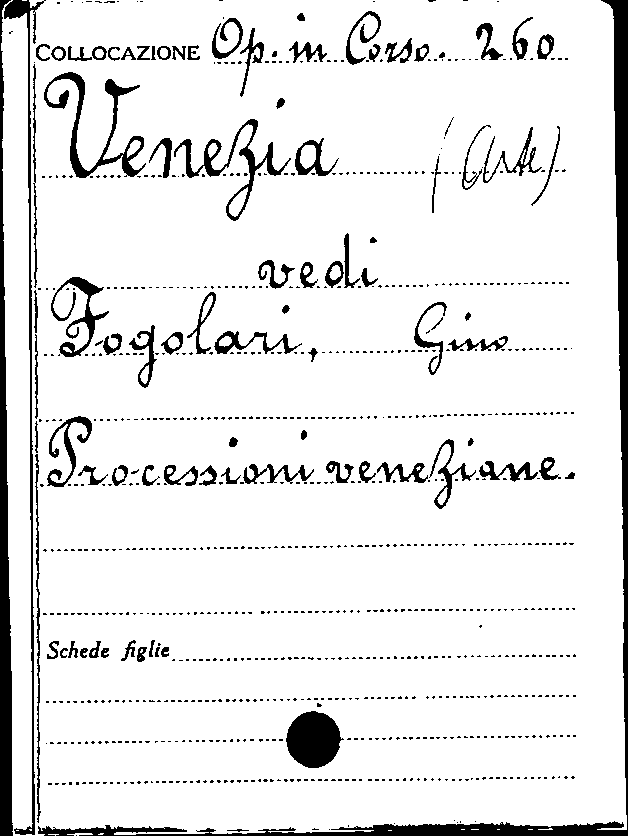 COLLOCAZIONE Op. in Corso. 260
Venezia (Arte)
vedi
Fogolari, Gino
Processioni veneziane.
Schede figlie